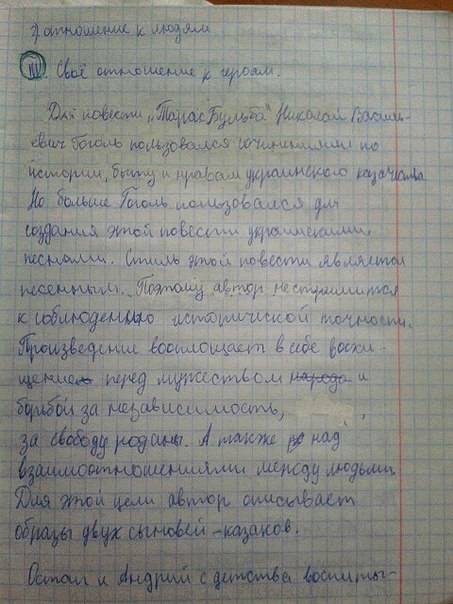 г) отношение к людям
IV Своё отношение к героям.
Для повести „Тарас Бульба" Николай Василь-
евич Гоголь пользовался сочинениями по
истории, быту и нравам украинского казачества.
Но больше Гоголь пользовался для
создания этой повести украинскими
песнями. Стиль этой повести является
песенным. Поэтому автор не стремится
к соблюденью исторической точности.
Произведение воплощает в себе восхи-
щение перед мужеством народа и
борьбой за независимость,
за свободу родины. А также над
взаимоотношениями между людьми.
Для этой цели автор описывает
образы двух сыновей-казаков.
Остап и Андрий с детства воспиты-